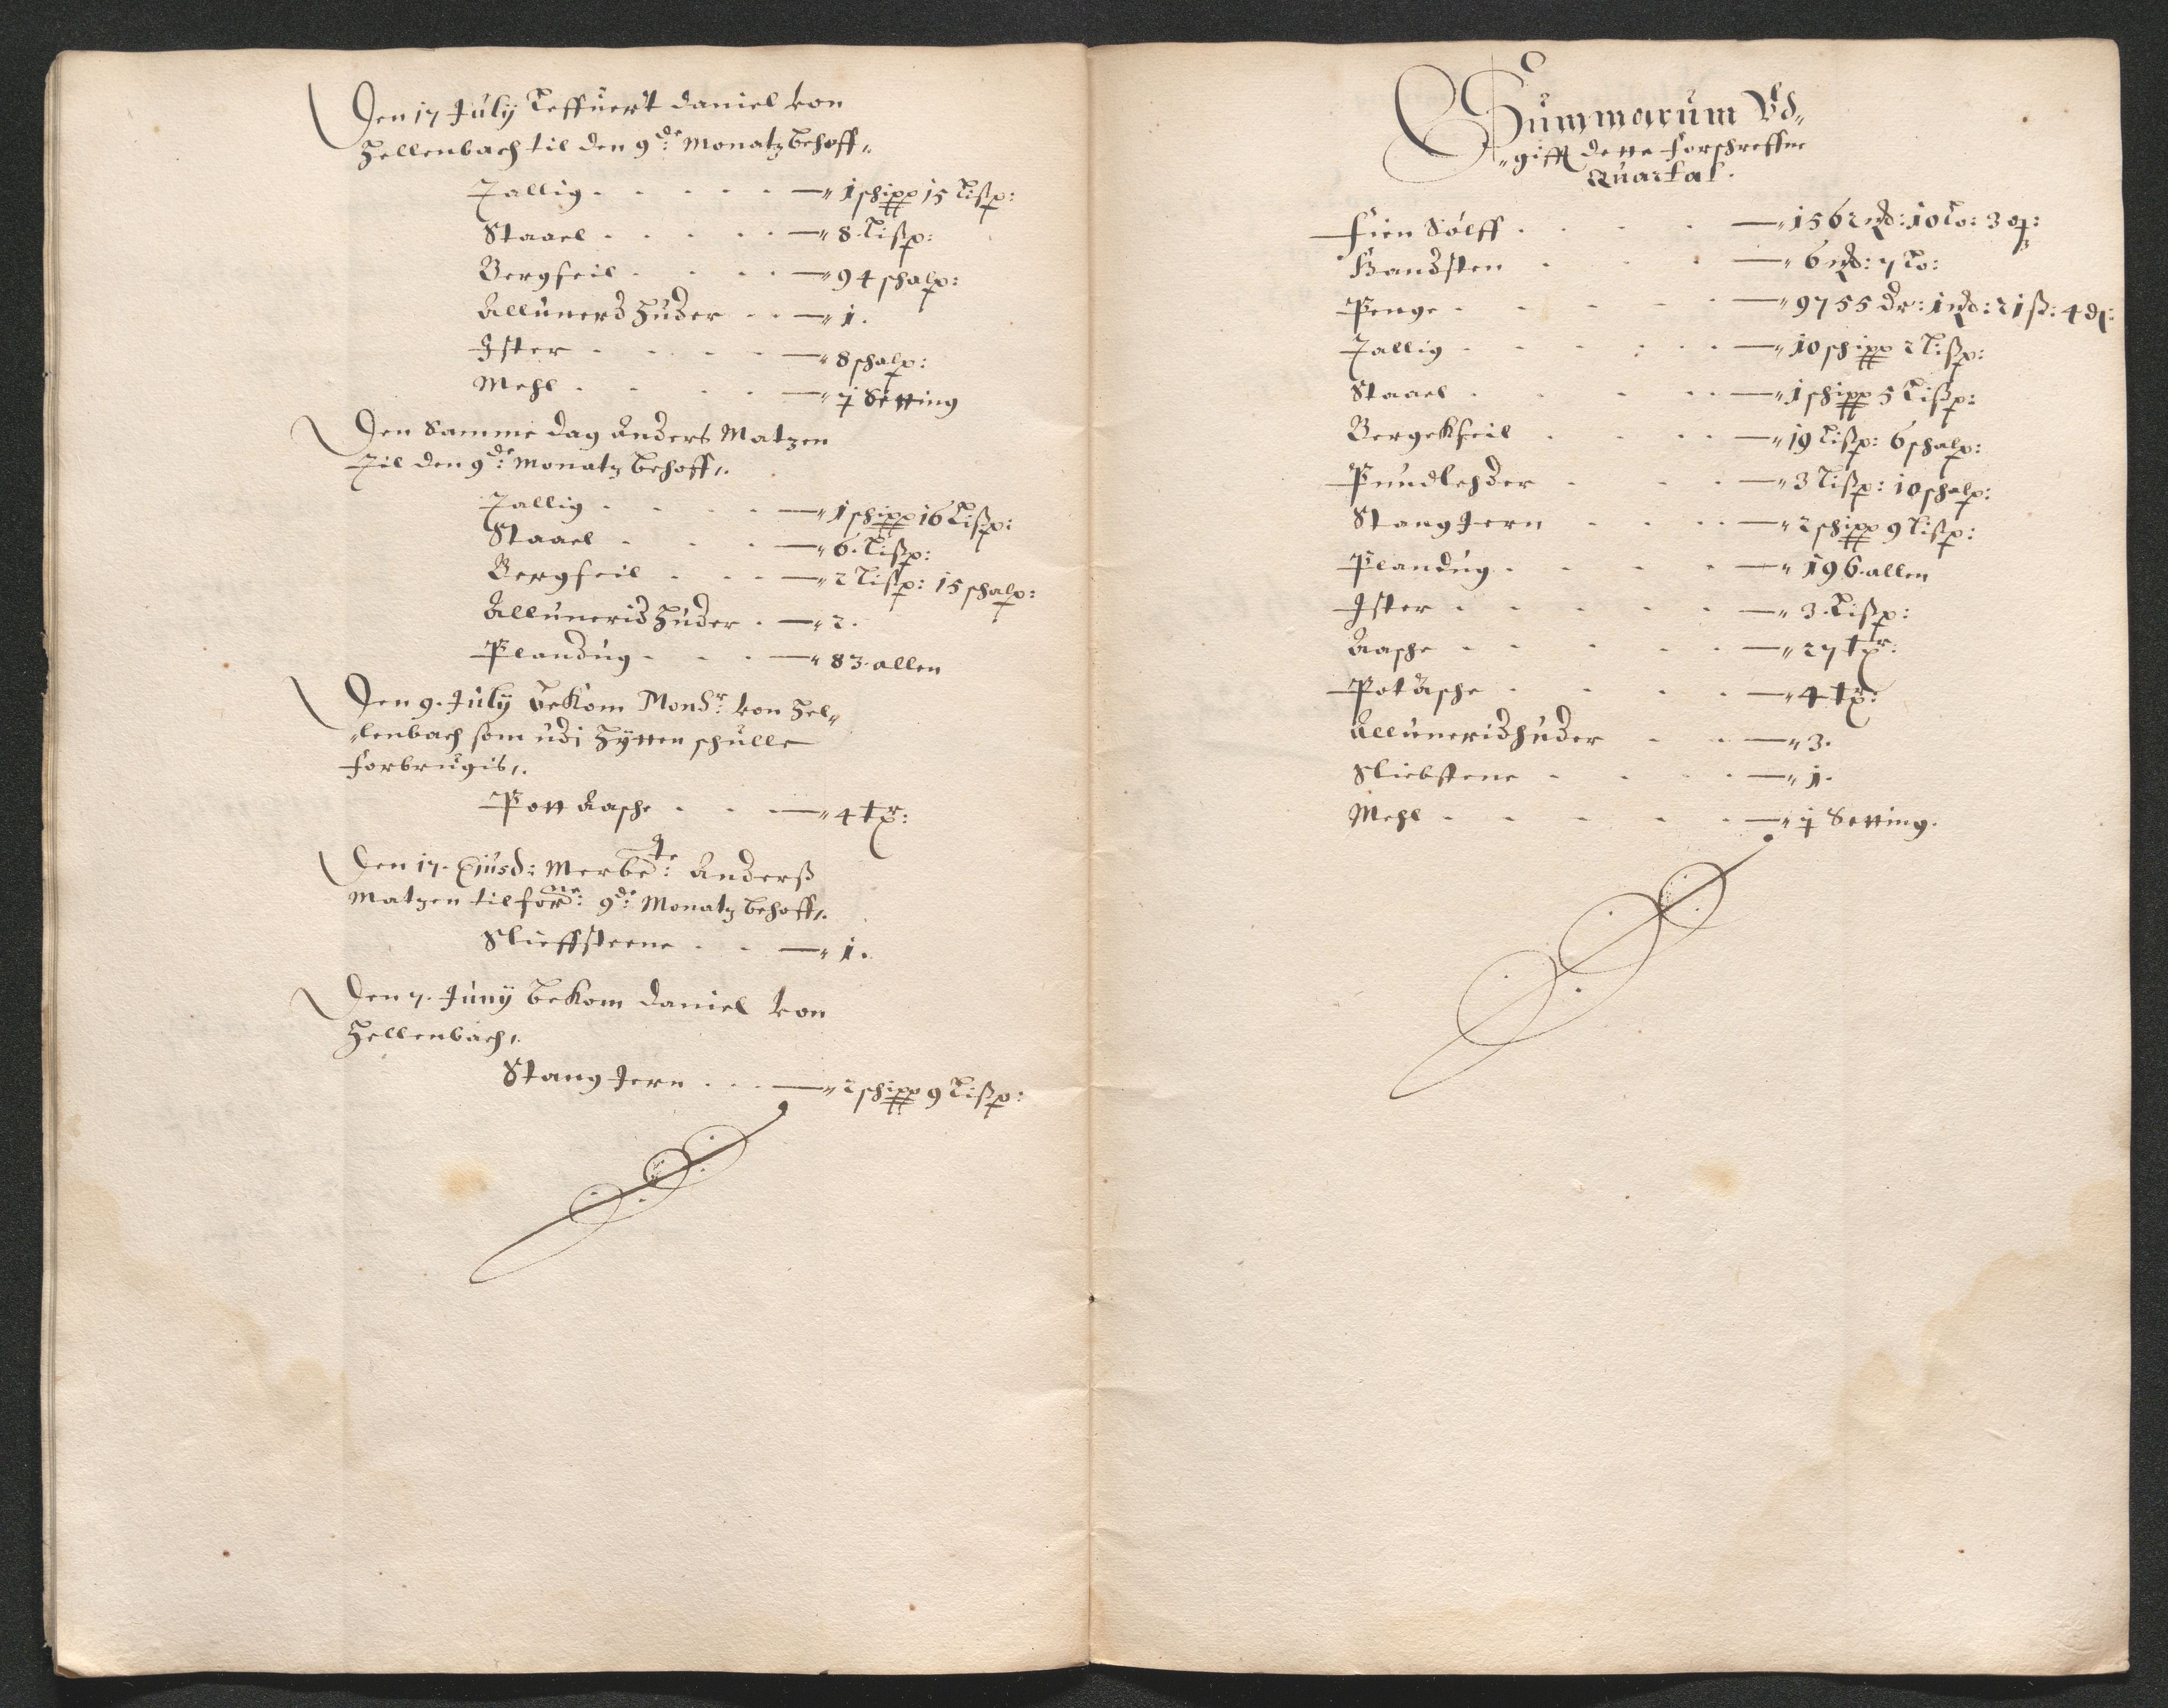 Den 17 July Leffuert Daniel von
Hellenbach til den 9de: Monatz behoff,,
Tallig . . . . . —,, 1 schipp 15 Lißp:
Staael . . . . —,, 8. Lißp:
Bergseil . . . . —,, 94 schalp:
Alluneridhuder . . —,, 1.
Ister . . . . . —,, 8 schalp:
Mehl . . . . —,, Setting
Den Samme dag Anders Matzen
Til den 9de: Monatz behoff,.
Tallig . . . . —,, 1 schipp 16 Lißp:
Staael . . . —,, 6. Lißp:
Bergseil . . . —,, 2 Lißp: 15 schalp:
Alluneridhuder . —,, 2.
Plandug . . . —,, 83. allen
Den 9. July bekom Monsr: von Hel,,
,,lenbach som udi Hytten schulle
forbrugis,.
Pott Aasche . . —,, 4 tr:
Den 17. Ejusd: Anderß
Matzen til forne: 9de: Monatz behoff,.
Slieffsteene . . —,, 1.
Den 7. Juny bekom Daniel von
Hellenbach,.
Stang Jern . . . —,, 2 schipp 9 Lißp:
Summarum Vd,,
,,gifft dette forschreffne
Quartal.
Fien Sølff . . . . —,, 1562 : 10 Lo: 3
Handsten . . . —,, 6 : 7 Lo:
Penge . . . . . —,, 9755 dr: 1 : 21 ß: 4
Tallig . . . . . . —,, 10 schipp 2 Lißp:
Staael . . . . . —,, 1 schipp 5 Lißp:
Bergekseil . . . . —,, 19 Lißp: 6 schalp:
Pundlehder . . . —,, 3 Lißp: 10 schalp:
Stang Jern . . . . —,, 2 schipp 9 Lißp:
Plandug . . . . —,, 196. allen
Ister . . . . . —,, 3. Lißp:
Aasche . . . . . —,, 27 tr:
Pot Asche . . . . —,, 4 tr:
Alluneridhuder . . —,, 3.
Sliebstene . . . . —,, 1.
Mehl . . . . . —,, Setting.